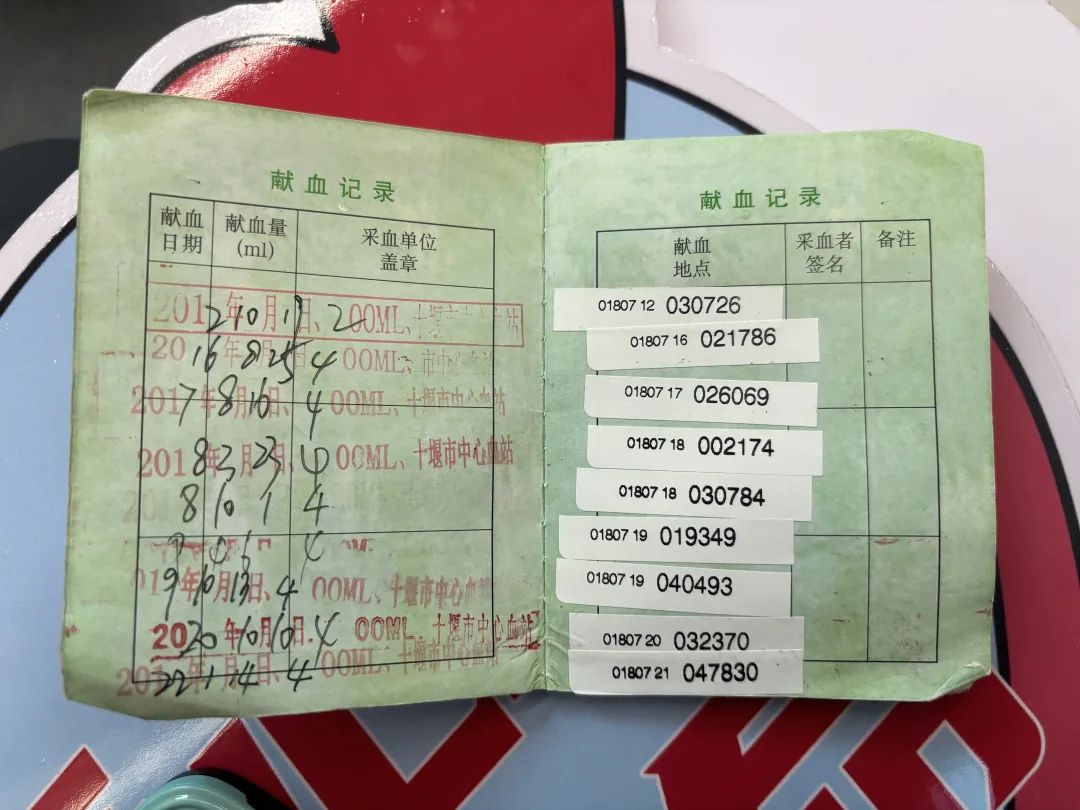 献血记录
献血日期 献血量(ml) 采血单位盖章
2012年10月17日、200ML、十堰市中心血站
2016年8月25日 400ML、市中心血站
2017年8月16日、400ML、十堰市中心血站
2018年3月23日、400ML、十堰市中心血站
8 10 1 4
9 4 4
2019年10月13日、400ML、十堰市中心血站
2020年10月10日.400ML、十堰市中心血站
22年1月14日、400ML、十堰市中心血站
献血记录
献血地点 采血者签名 备注
01807 12 030726
01807 16 021786
01807 17 026069
01807 18 002174
01807 18 030784
01807 19 019349
01807 19 040493
01807 20 032370
01807 21 047830